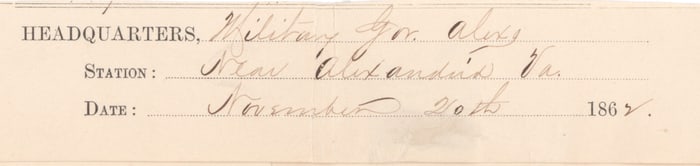 HEADQUARTERS, Military Gov. Alexa
STATION: Near Alexandria Va.
DATE: November 20th 1862.